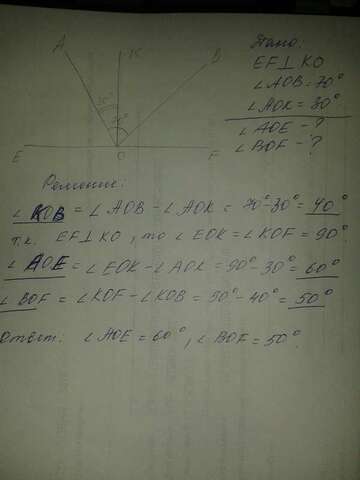 A К B
30°
70°
E O F
Дано:
EF⊥KO
∠AOB=70°
∠AOK=30°
∠AOE-?
∠BOF-?
Решение:
∠KOB=∠AOB-∠AOK=70°-30°=40°
т.к. EF⊥KO, то ∠EOK=∠KOF=90°
∠AOE=∠EOK-∠AOK=90°-30°=60°
∠BOF=∠KOF-∠KOB=90°-40°=50°
Ответ: ∠AOE=60°, ∠BOF=50°